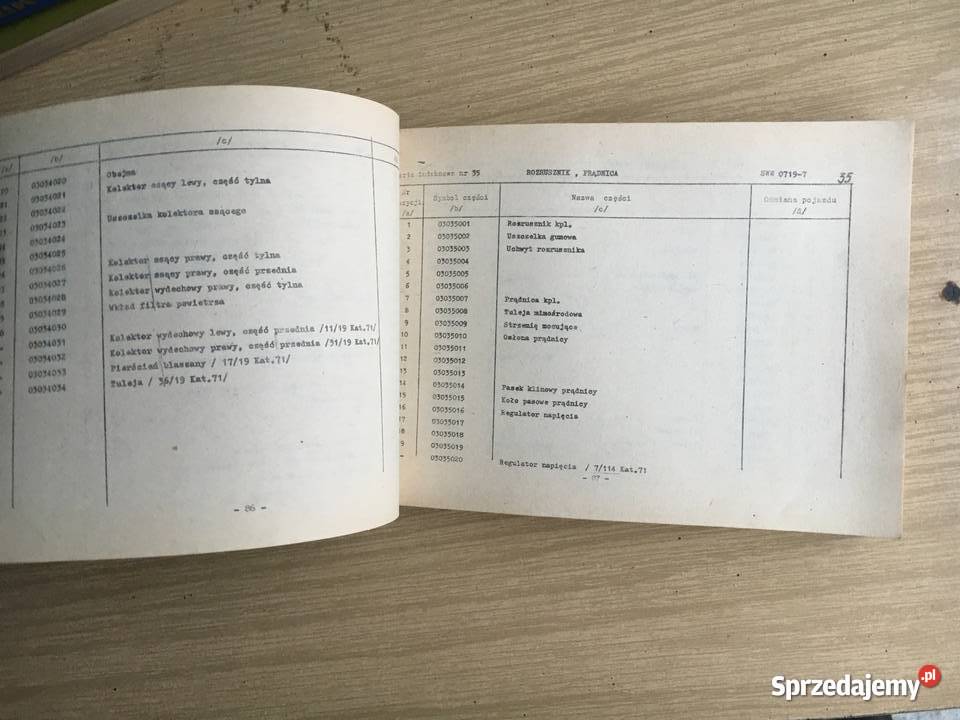 /b/
/c/
03034020 Obejma
03034021 Kolektor ssący lewy, część tylna
03034022
03034023 Uszczelka kolektora ssącego
03034024
03034025
03034026 Kolektor ssący prawy, część tylna
03034027 Kolektor ssący prawy, część przednia
03034028 Kolektor wydechowy prawy, część tylna
03034029 Wkład filtra powietrza
03034030
03034031 Kolektor wydechowy lewy, część przednia /11/19 Kat.71/
03034032 Kolektor wydechowy prawy, część przednia /31/19 Kat.71/
03034033 Pierścień blaszany / 17/19 Kat.71/
03034034 Tuleja / 36/19 Kat.71/
- 86 -
nr 35 ROZRUSZNIK , PRĄDNICA SWW 0719-7 35
Symbol części Nazwa części Odmiana pojazdu
/a/ /b/ /c/ /d/
1 03035001 Rozrusznik kpl.
2 03035002 Uszczelka gumowa
3 03035003 Uchwyt rozrusznika
4 03035004
5 03035005
6 03035006
7 03035007 Prądnica kpl.
8 03035008 Tuleja mimośrodowa
9 03035009 Strzemię mocujące
10 03035010 Osłona prądnicy
11 03035011
12 03035012
13 03035013
14 03035014 Pasek klinowy prądnicy
15 03035015 Koło pasowe prądnicy
16 03035016 Regulator napięcia
17 03035017
18 03035018
19 03035019
- 03035020 Regulator napięcia / 7/114 Kat.71
- 87 -
Sprzedajemy.pl